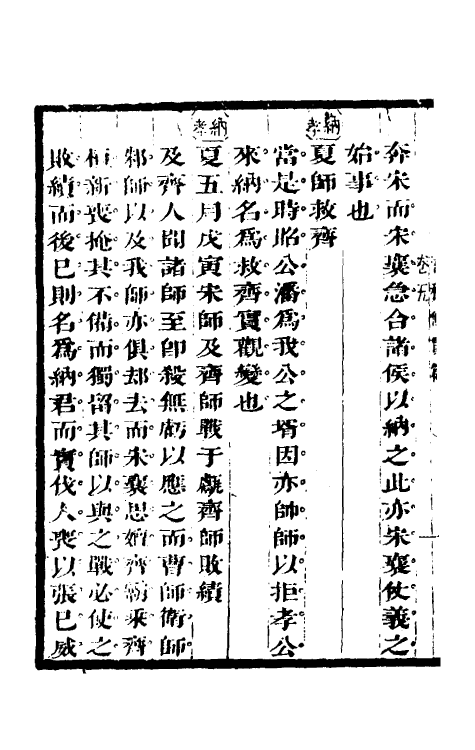 奔宋而宋襄急合諸侯以納之此亦宋襄仗義之
始事也
納孝
夏師救齊
當是時昭公潘爲我公之壻因亦帥師以拒孝公
來納名爲救齊實觀變也
納孝
夏五月戊寅宋師及齊師戰于甗齊師敗績
及齊人聞諸師至卽殺無虧以應之而曹師衛師
邾師以及我師亦俱却去而宋襄思嬗齊霸乘齊
桓新喪掩其不備而獨留其師以與之戰必使之
敗績而後已則名爲納君而實伐人喪以張已威
卷五